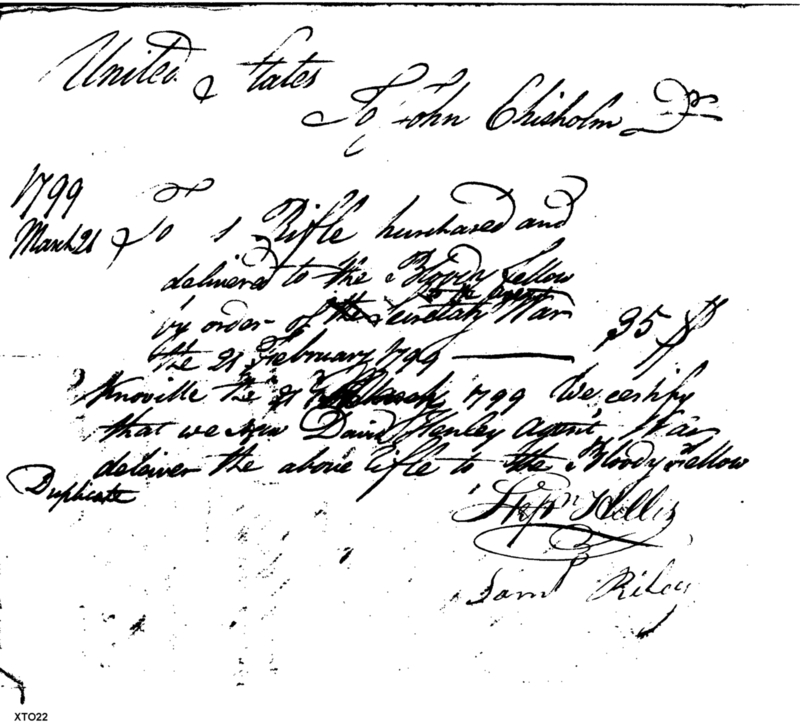 United States
To John Chisholm Dr
1799
March 21 To 1 Rifle purchased and
delivered to the Bloody fellow
to the agent
by order of the Secretary War
the 21 February 1799 — 35 $
Knoville the 21 March 1799 We certify
that we saw David Henley Agent War
deliver the above rifle to the Bloody Fellow
Duplicate
Hillis
Saml Riley
XTO22